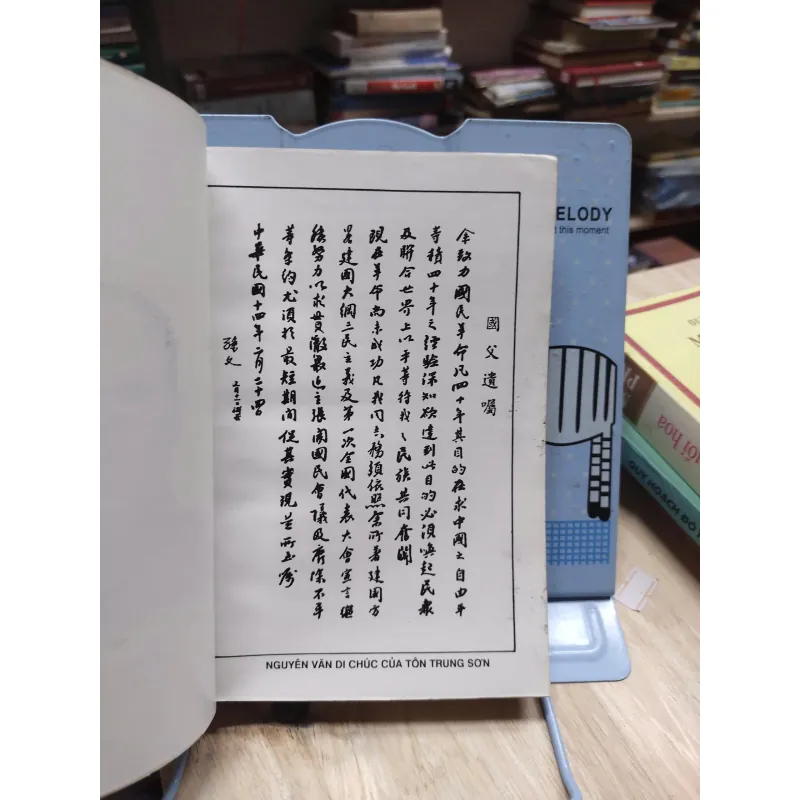 國父遺囑
余致力國民革命凡四十年其目的在求中國之自由平
等積四十年之經驗深知欲達到此目的必須喚起民眾
及聯合世界上以平等待我之民族共同奮鬪
現在革命尚未成功凡我同志務須依照余所著建國方
略建國大綱三民主義及第一次全國代表大會宣言繼
續努力以求貫澈最近主張開國民會議及廢除不平
等條約尤須於最短期間促其實現是所至囑
中華民國十四年二月二十四日
孫文 三月十一日補簽
NGUYÊN VĂN DI CHÚC CỦA TÔN TRUNG SƠN
ELODY
this moment
QUY HOẠCH ĐÔ